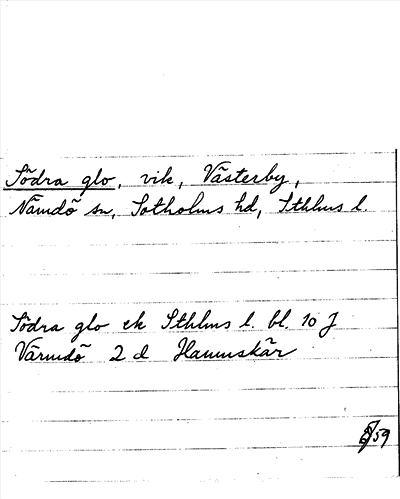 Södra glo, vik, Västerby,
Nämdö sn, Sotholms hd, Sthlms l.
Södra glo ek Sthlms l. bl. 10 J
Värmdö 2 d Hamnskär
59